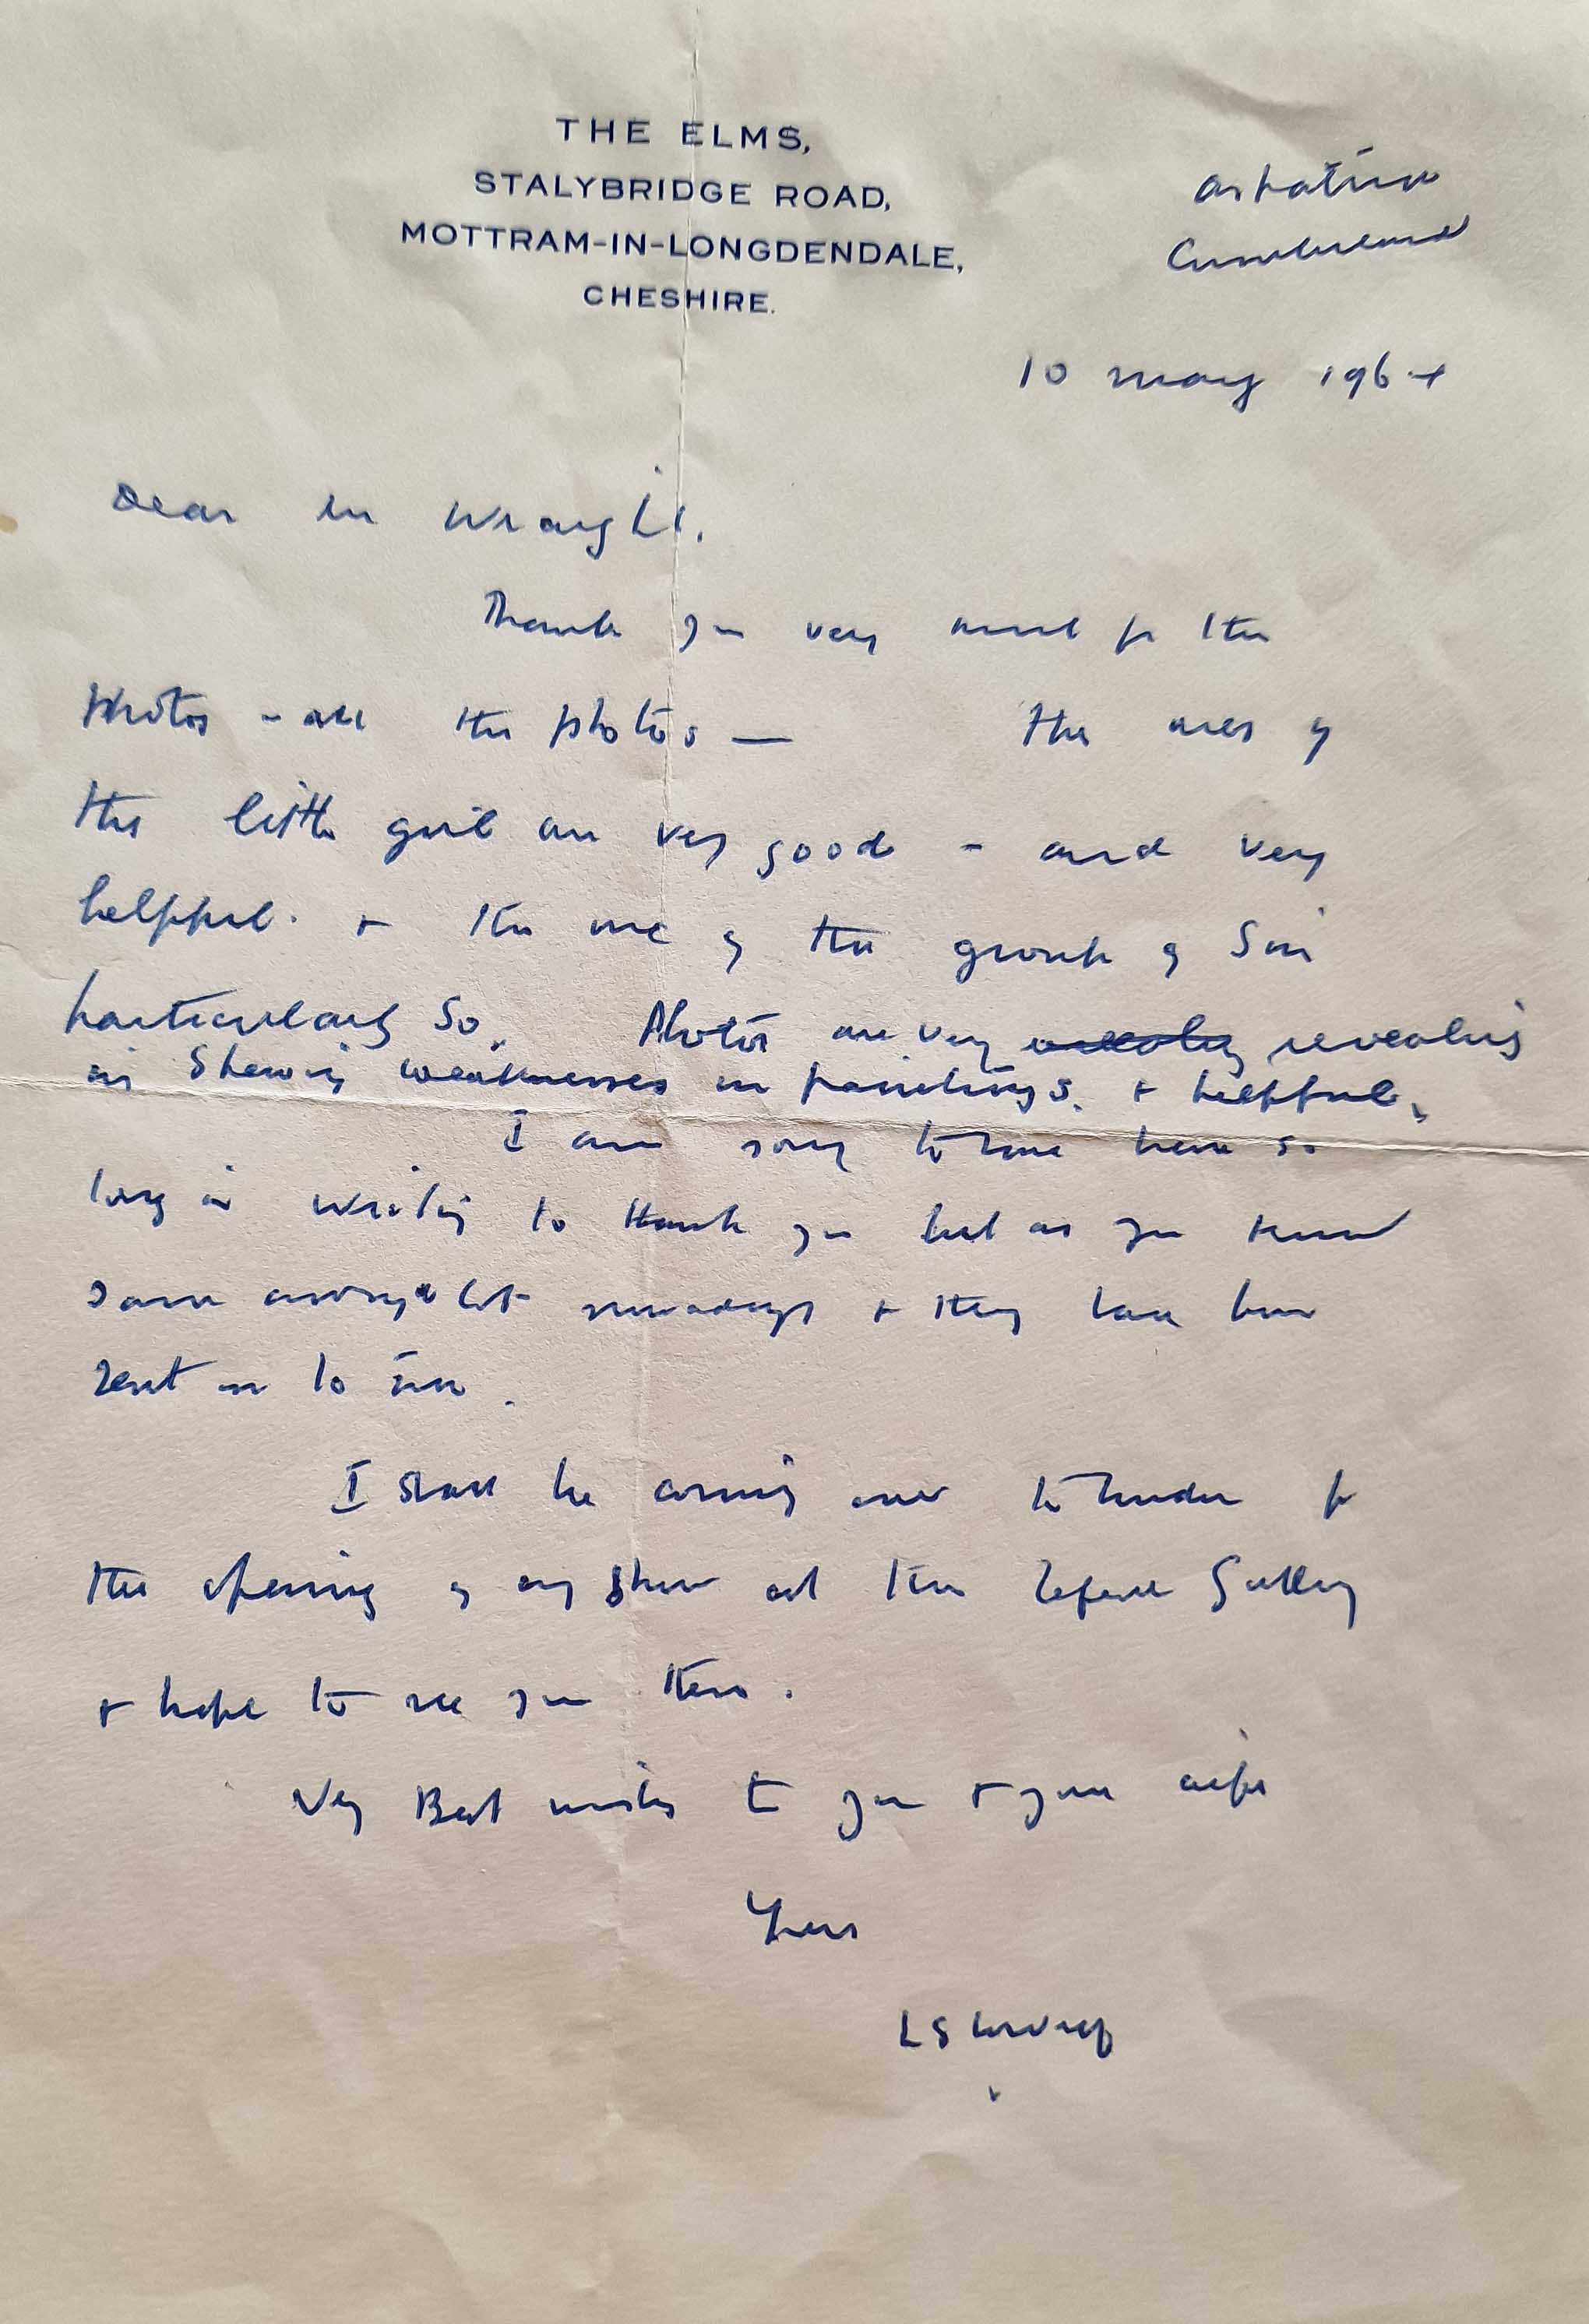 THE ELMS,
STALYBRIDGE ROAD,
MOTTRAM-IN-LONGDENDALE,
CHESHIRE.
Aspatria
Cumberland
10 May 1964
Dear Mr Wraight.
Thank you very much for the
Photos - all the photos — the ones of
the little girl are very good - and very
helpful. + the one of the group of Six
particularly so. Photos are very revealing
in Shewing weaknesses in paintings. + helpful.
I am sorry to have been so
long in writing to thank you but as you know
I am away a lot nowadays + they have been
sent on to me.
I shall be coming over to London for
the opening of my show at the Lefevre Gallery
+ hope to see you there.
Very Best wishes to you + your wife
Yours
L S Lowry